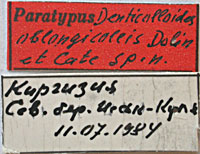 Paratypus Denticolloides
oblongicoleis Dolin
et Cate sp.n.
Киргизия
Сев. бер. Иссык-Куля
11.07.1984